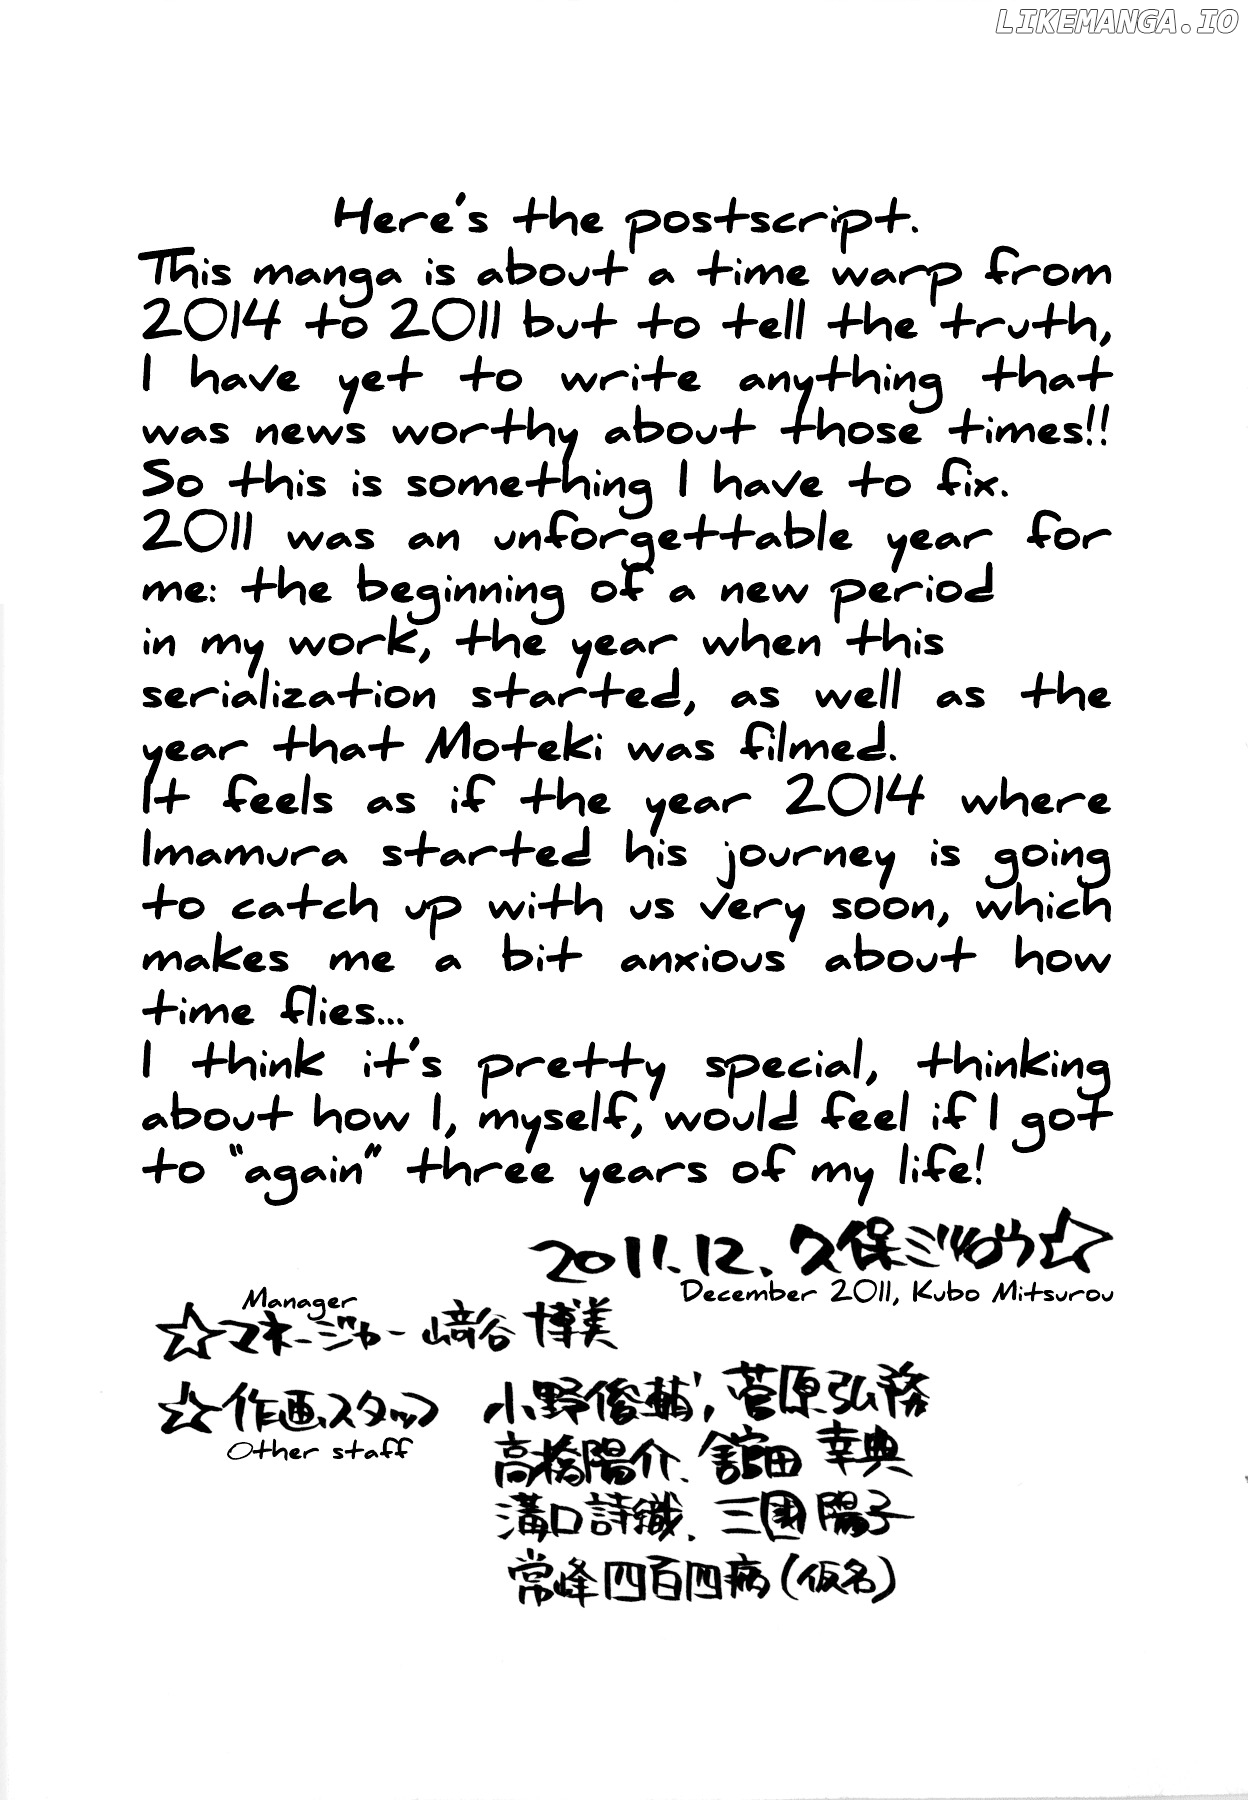 LIKEMANGA.IO
Here's the postscript.
This manga is about a time warp from
2014 to 2011 but to tell the truth,
I have yet to write anything that
was news worthy about those times!!
So this is something I have to fix.
2011 was an unforgettable year for
me: the beginning of a new period
in my work, the year when this
serialization started, as well as the
year that Moteki was filmed.
It feels as if the year 2014 where
Imamura started his journey is going
to catch up with us very soon, which
makes me a bit anxious about how
time flies...
I think it's pretty special, thinking
about how I, myself, would feel if I got
to "again" three years of my life!
2011.12. 久保ミツロウ☆
December 2011, Kubo Mitsurou
Manager
☆マネージャー 﨑谷 博美
☆作画スタッフ 小野俊輔, 菅原弘務
Other staff
高橋陽介、舘田 幸典
溝口詩織、三國陽子
常峰四百四病(仮名)